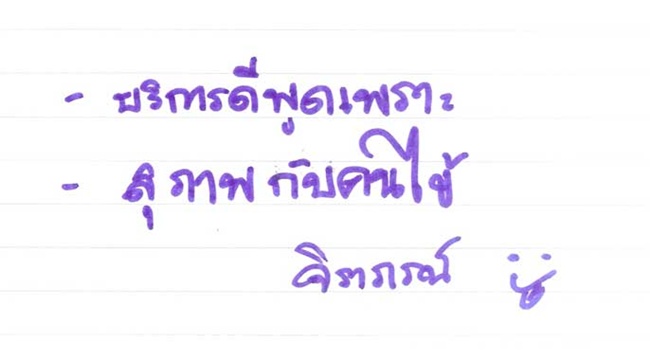 - บริการดีพูดเพราะ
- สุภาพกับคนไข้
จิราภรณ์